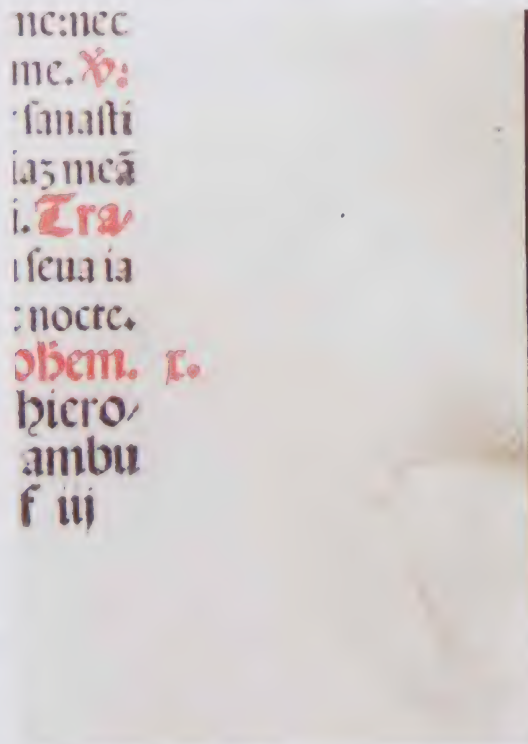 ne:nec
me. ℣:
sanasti
iaʒ meā
i. Tra⸗
seua ia
nocte.
ohem. x.
hiero⸗
ambu
f iij